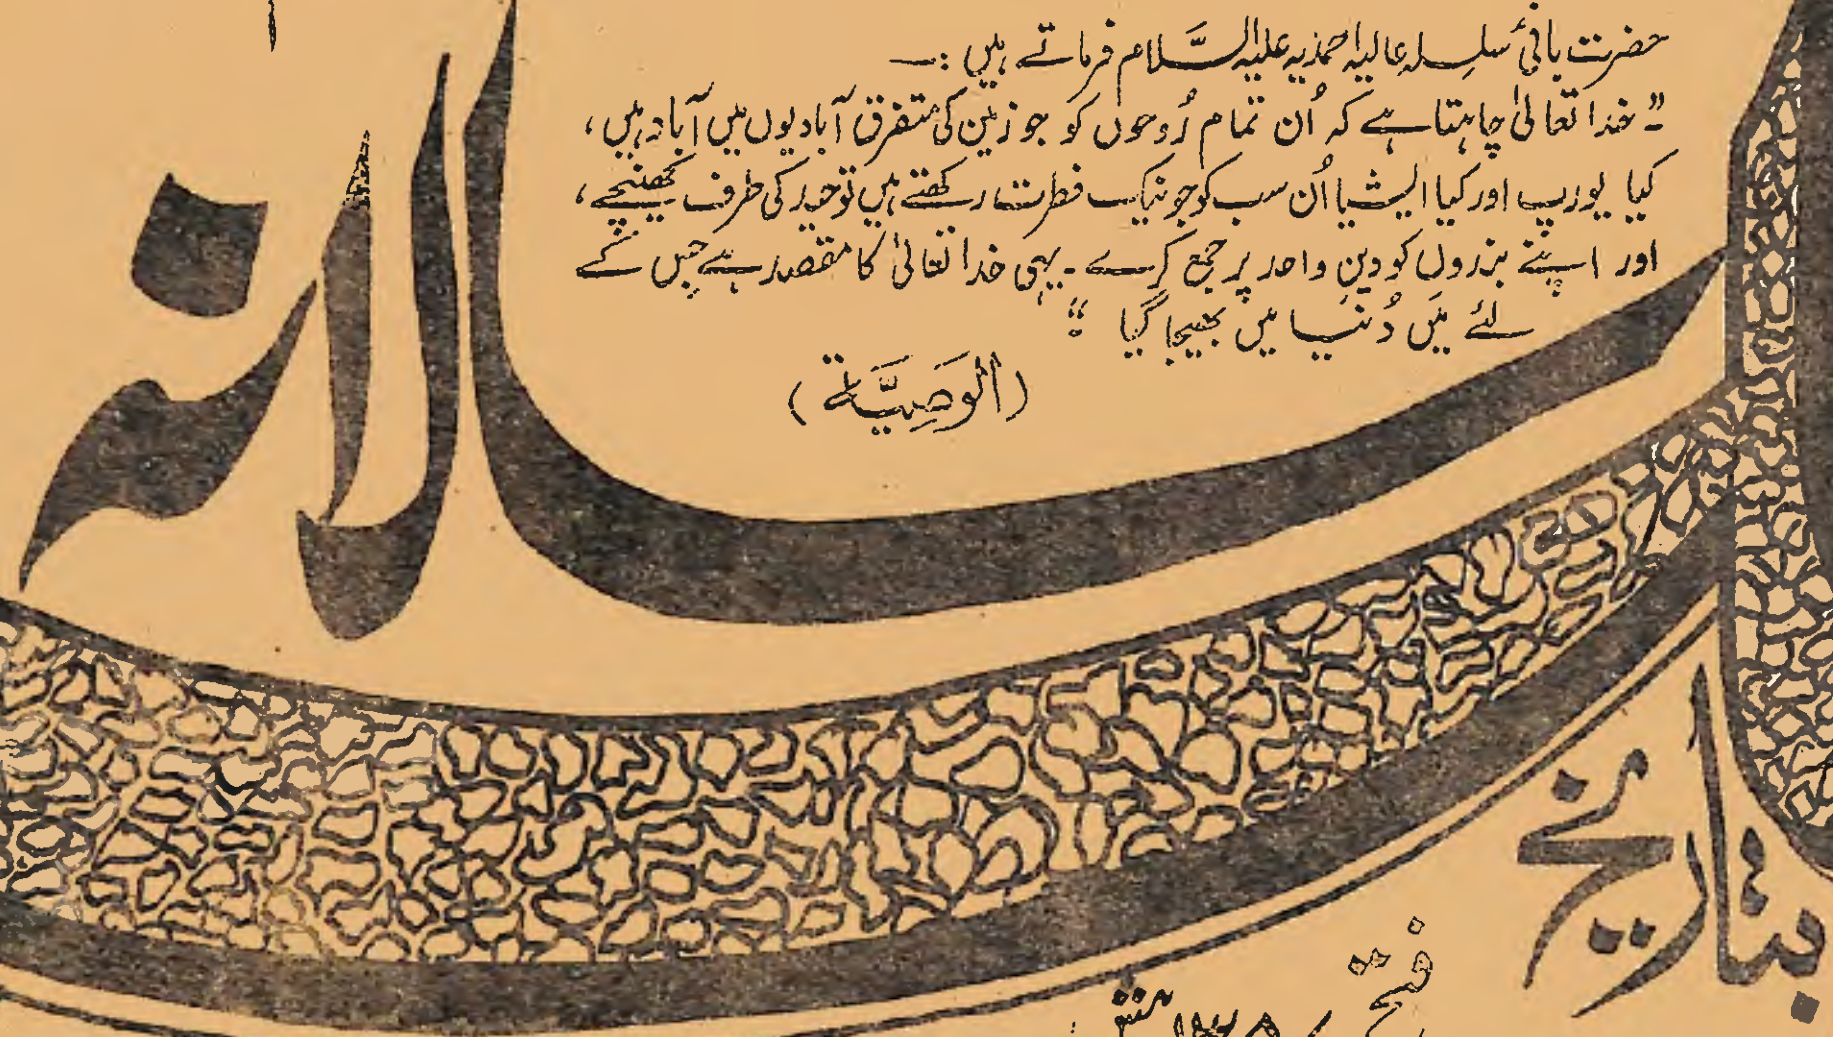 حضرت بانیٔ سلسلہ عالیہ احمدیہ علیہ السَّلام فرماتے ہیں :—
"خدا تعالیٰ چاہتا ہے کہ اُن تمام رُوحوں کو جو زمین کی متفرق آبادیوں میں آباد ہیں،
کیا یورپ اور کیا ایشیا اُن سب کو جو نیک فطرت رکھتے ہیں توحید کی طرف کھینچے،
اور اپنے بندوں کو دینِ واحد پر جمع کرے ۔ یہی خدا تعالیٰ کا مقصد ہے جس کے
لئے مَیں دُنیا میں بھیجا گیا"
(الوَصِیَّة)
سالانہ
بتاریخ
فتح